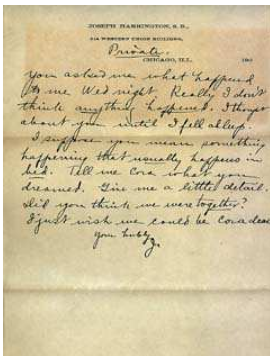 JOSEPH HARRINGTON, S. B.,
WESTERN UNION BUILDING,
Private.
CHICAGO, ILL. 190
You asked me what happened
to me Wed night. Really I don't
think anything happened. I thought
about you until I fell asleep.
I suppose you mean something
happening that usually happens in
bed. Tell me Cora what you
dreamed. Give me a little detail.
Did you think we were together?
I just wish we could be Cora dear
Your hubby
J.